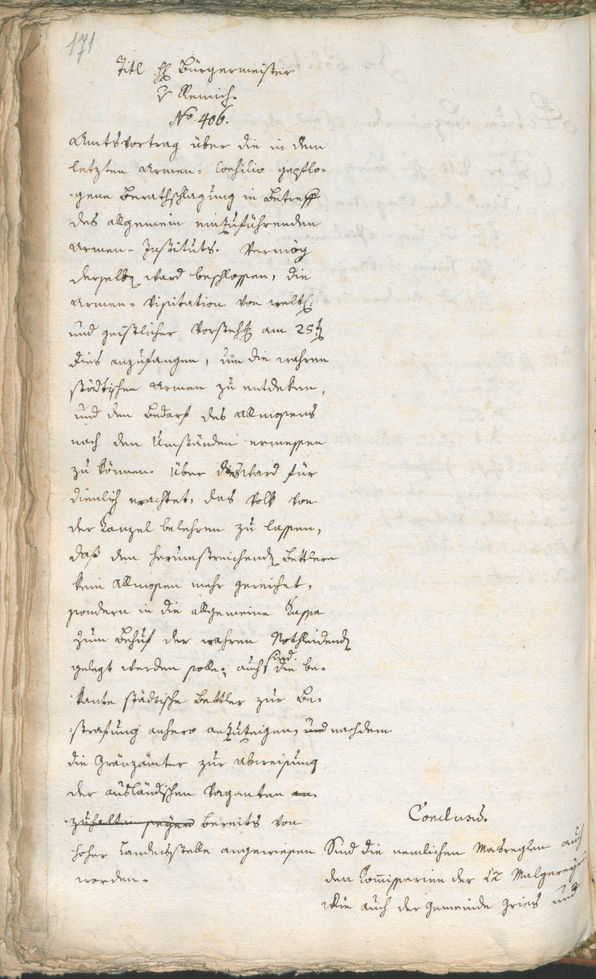 171
Titl HH Bürgermeister
v Remich.
No 406.
Amtsvortrag über die in dem
letzten Armen-Consilio gepflo-
gene Berathschlagung in Betreff
des allgemein einzuführenden
Armen-Instituts. Vermög
derselben ward beschlossen, die
Armen-Visitation von weltl:
und geistlicher Vorsteh am 25t
dies anzufangen, um die wahren
städtischen Armen zu entdeken,
und den Bedarf des Allmosens
nach den Umständen ermessen
zu können. Über dies ward für
dienlich erachtet, das Volk von
der Kanzel belehren zu lassen,
daß den herumstreichend Bettlern
kein Allmosen mehr gereichet,
sondern in die allgemeine Cassa
zum Behuf der wahren Nothleidend
gelegt werden solle; auch sind die be-
kante städtische Bettler zur Be-
strafung anhero anzuzeigen, und nachdem
die Gränzämter zur Abweisung
der ausländischen Vaganten an-
zuhalten seyen bereits von
hoher Landesstelle angewiesen
worden.
Conclusum.
Sind die nemlichen Masreglen auch
den Commissarien der 12 Malgereyen
wie auch der Gemeinde Gries und